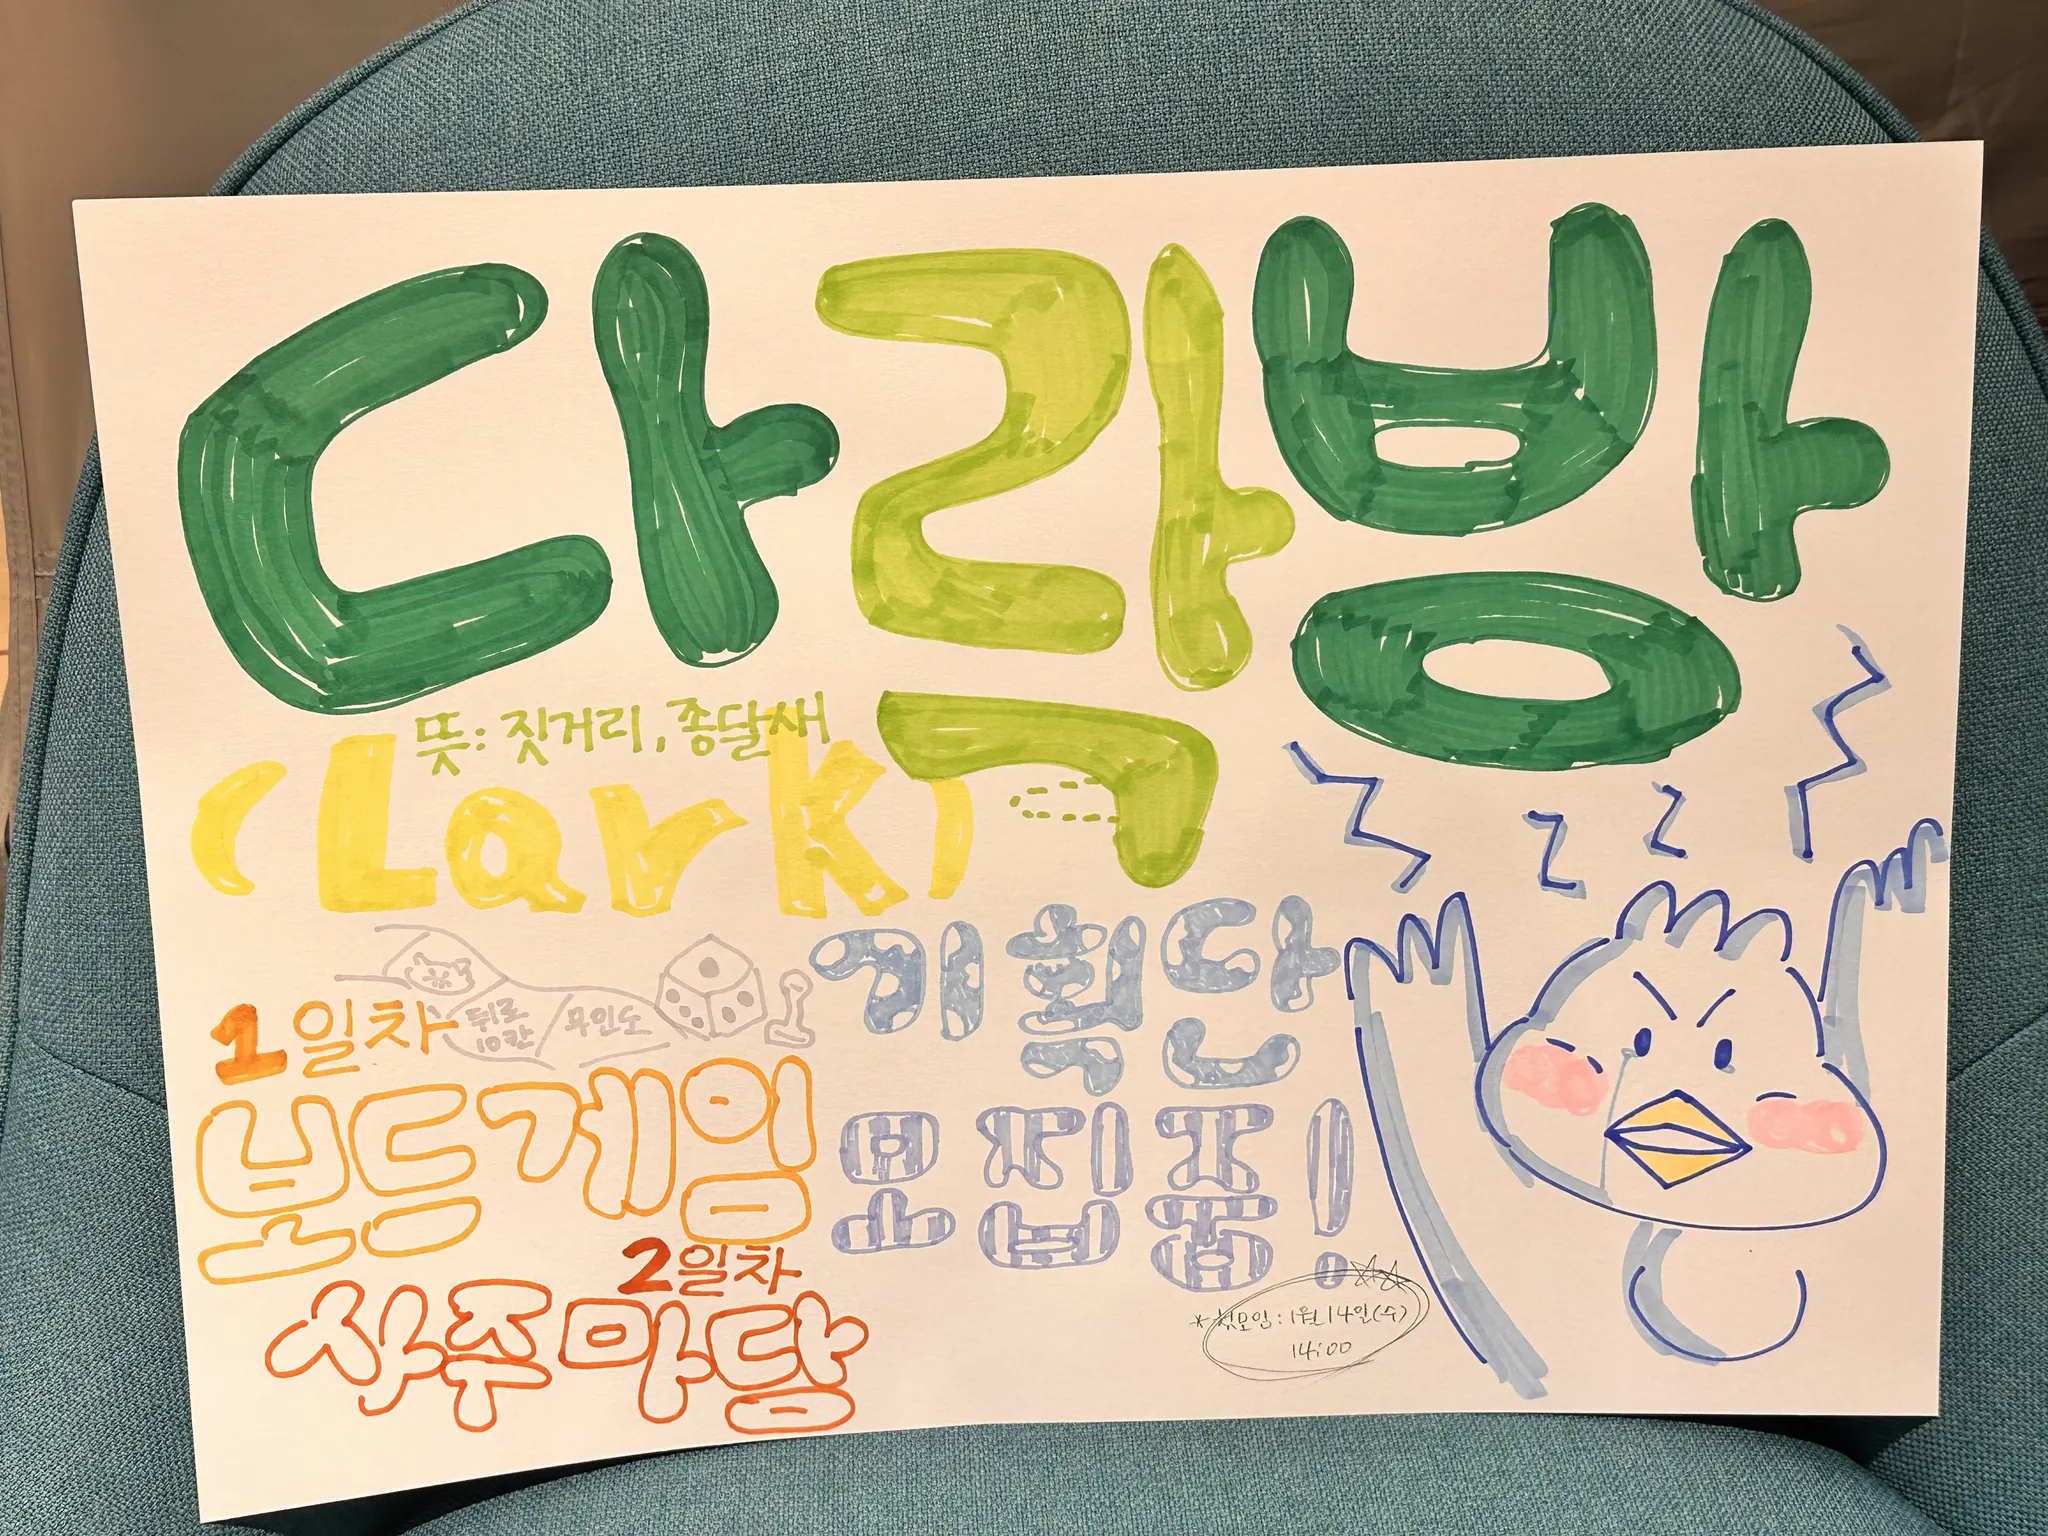 다락방
뜻: 짓거리, 종달새
(Lark)
1일차
뒤로
10칸
무인도
보드게임
2일차
사주마담
기획단
모집중!
*첫모임: 1월 14일(수)
14:00